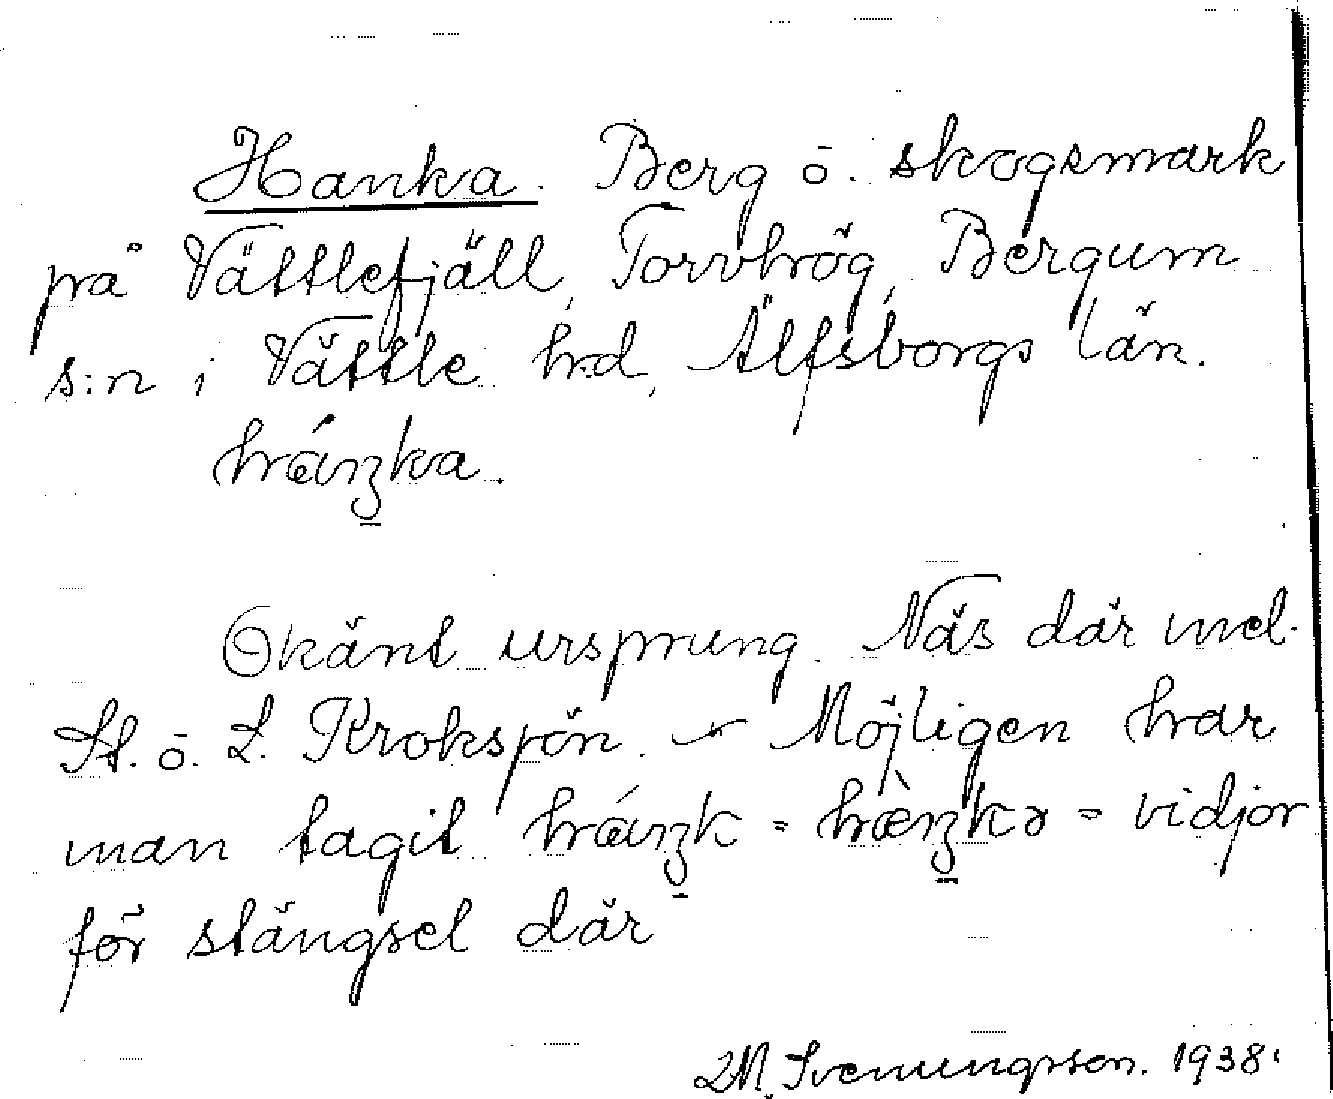 Hanka. Berg o. skogsmark
på Vättlefjäll, Torvhög, Bergum
s:n i Vättle hd, Älfsborgs län.
háŋka.
Okänt ursprung. Näs där mel.
St. o. L. Kroksjön. – Möjligen har
man tagit háŋk = hæ̀ŋkər = vidjor
för stängsel där
M. Svenungsson. 1938.